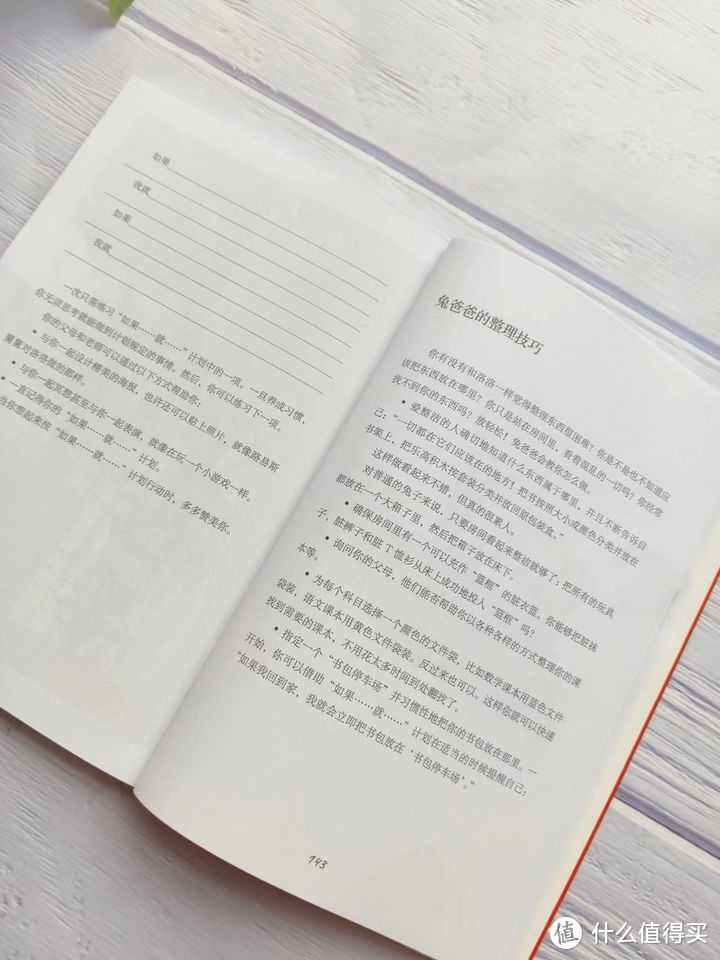 如果
我就
如果
我就
一次只需练习“如果……就……”计划中的一项。一旦养成习惯，
你无须思考就能做到计划规定的事情。然后，你可以练习下一项。
你的父母和老师可以通过以下方式帮助你：
• 与你一起设计精美的海报，也许还可以贴上照片，就像路易斯
舅舅对洛洛做的那样。
• 与你一起冥想甚至与你一起表演，就像在玩一个小游戏一样。
• 一直记得你的“如果……就……”计划。
当你想起来按“如果……就……”计划行动时，多多赞美你。
兔爸爸的整理技巧
你有没有和洛洛一样觉得整理东西很困难？你是不是也不知道应
该把东西放在哪里？你只是站在房间里，看着混乱的一切吗？你经常
找不到你的东西吗？放轻松！兔爸爸会教你怎么做。
• 爱整洁的人确切地知道什么东西属于哪里，并且不断告诉自
己：“一切都在它们应该在的地方！把书按照大小或颜色分类并放在
书架上，把乐高积木按套装分类并放回原包装盒。”
这样做看起来不错，但真的很累人。
对普通的兔子来说，只要房间看起来整洁就够了：把所有的玩具
都放在一个大箱子里，然后把箱子放在床下。
• 确保房间里有一个可以充作“篮框”的脏衣篮。你能够把脏袜
子、脏裤子和脏T恤衫从床上成功地投入“篮框”吗？
• 询问你的父母，他们能否帮助你以各种各样的方式整理你的课
本等。
• 为每个科目选择一个颜色的文件袋，比如数学课本用蓝色文件
袋装，语文课本用黄色文件袋装。反过来也可以。这样你就可以快速
找到需要的课本，不用花太多时间到处翻找了。
• 指定一个“书包停车场”并习惯性地把你的书包放在那里。一
开始，你可以借助“如果……就……”计划在适当的时候提醒自己：
“如果我回到家，我就会立即把书包放在‘书包停车场’。”
143
值 什么值得买